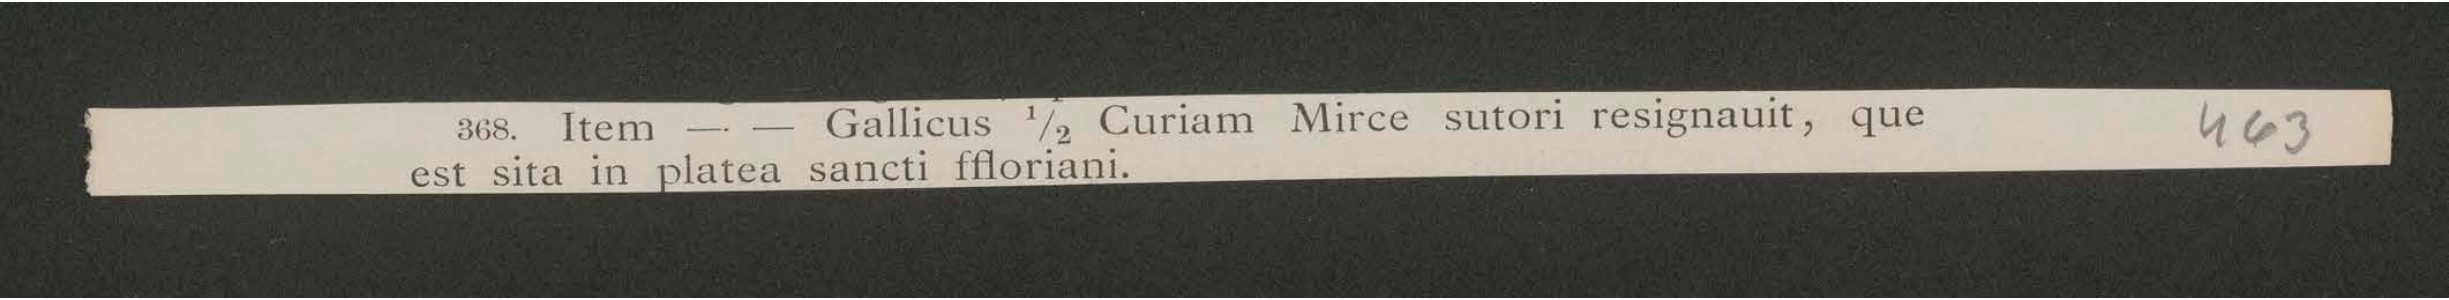 368. Item —· — Gallicus ¹/₂ Curiam Mirce sutori resignauit, que 463
est sita in platea sancti ffloriani.